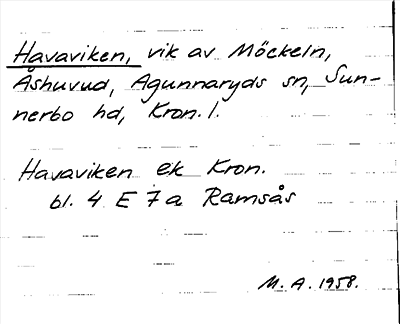 Havaviken, vik av Möckeln,
Åshuvud, Agunnaryds sn, Sun-
nerbo hd, Kron. l.
Havaviken ek Kron.
bl. 4 E 7a Ramsås
M. A. 1958.